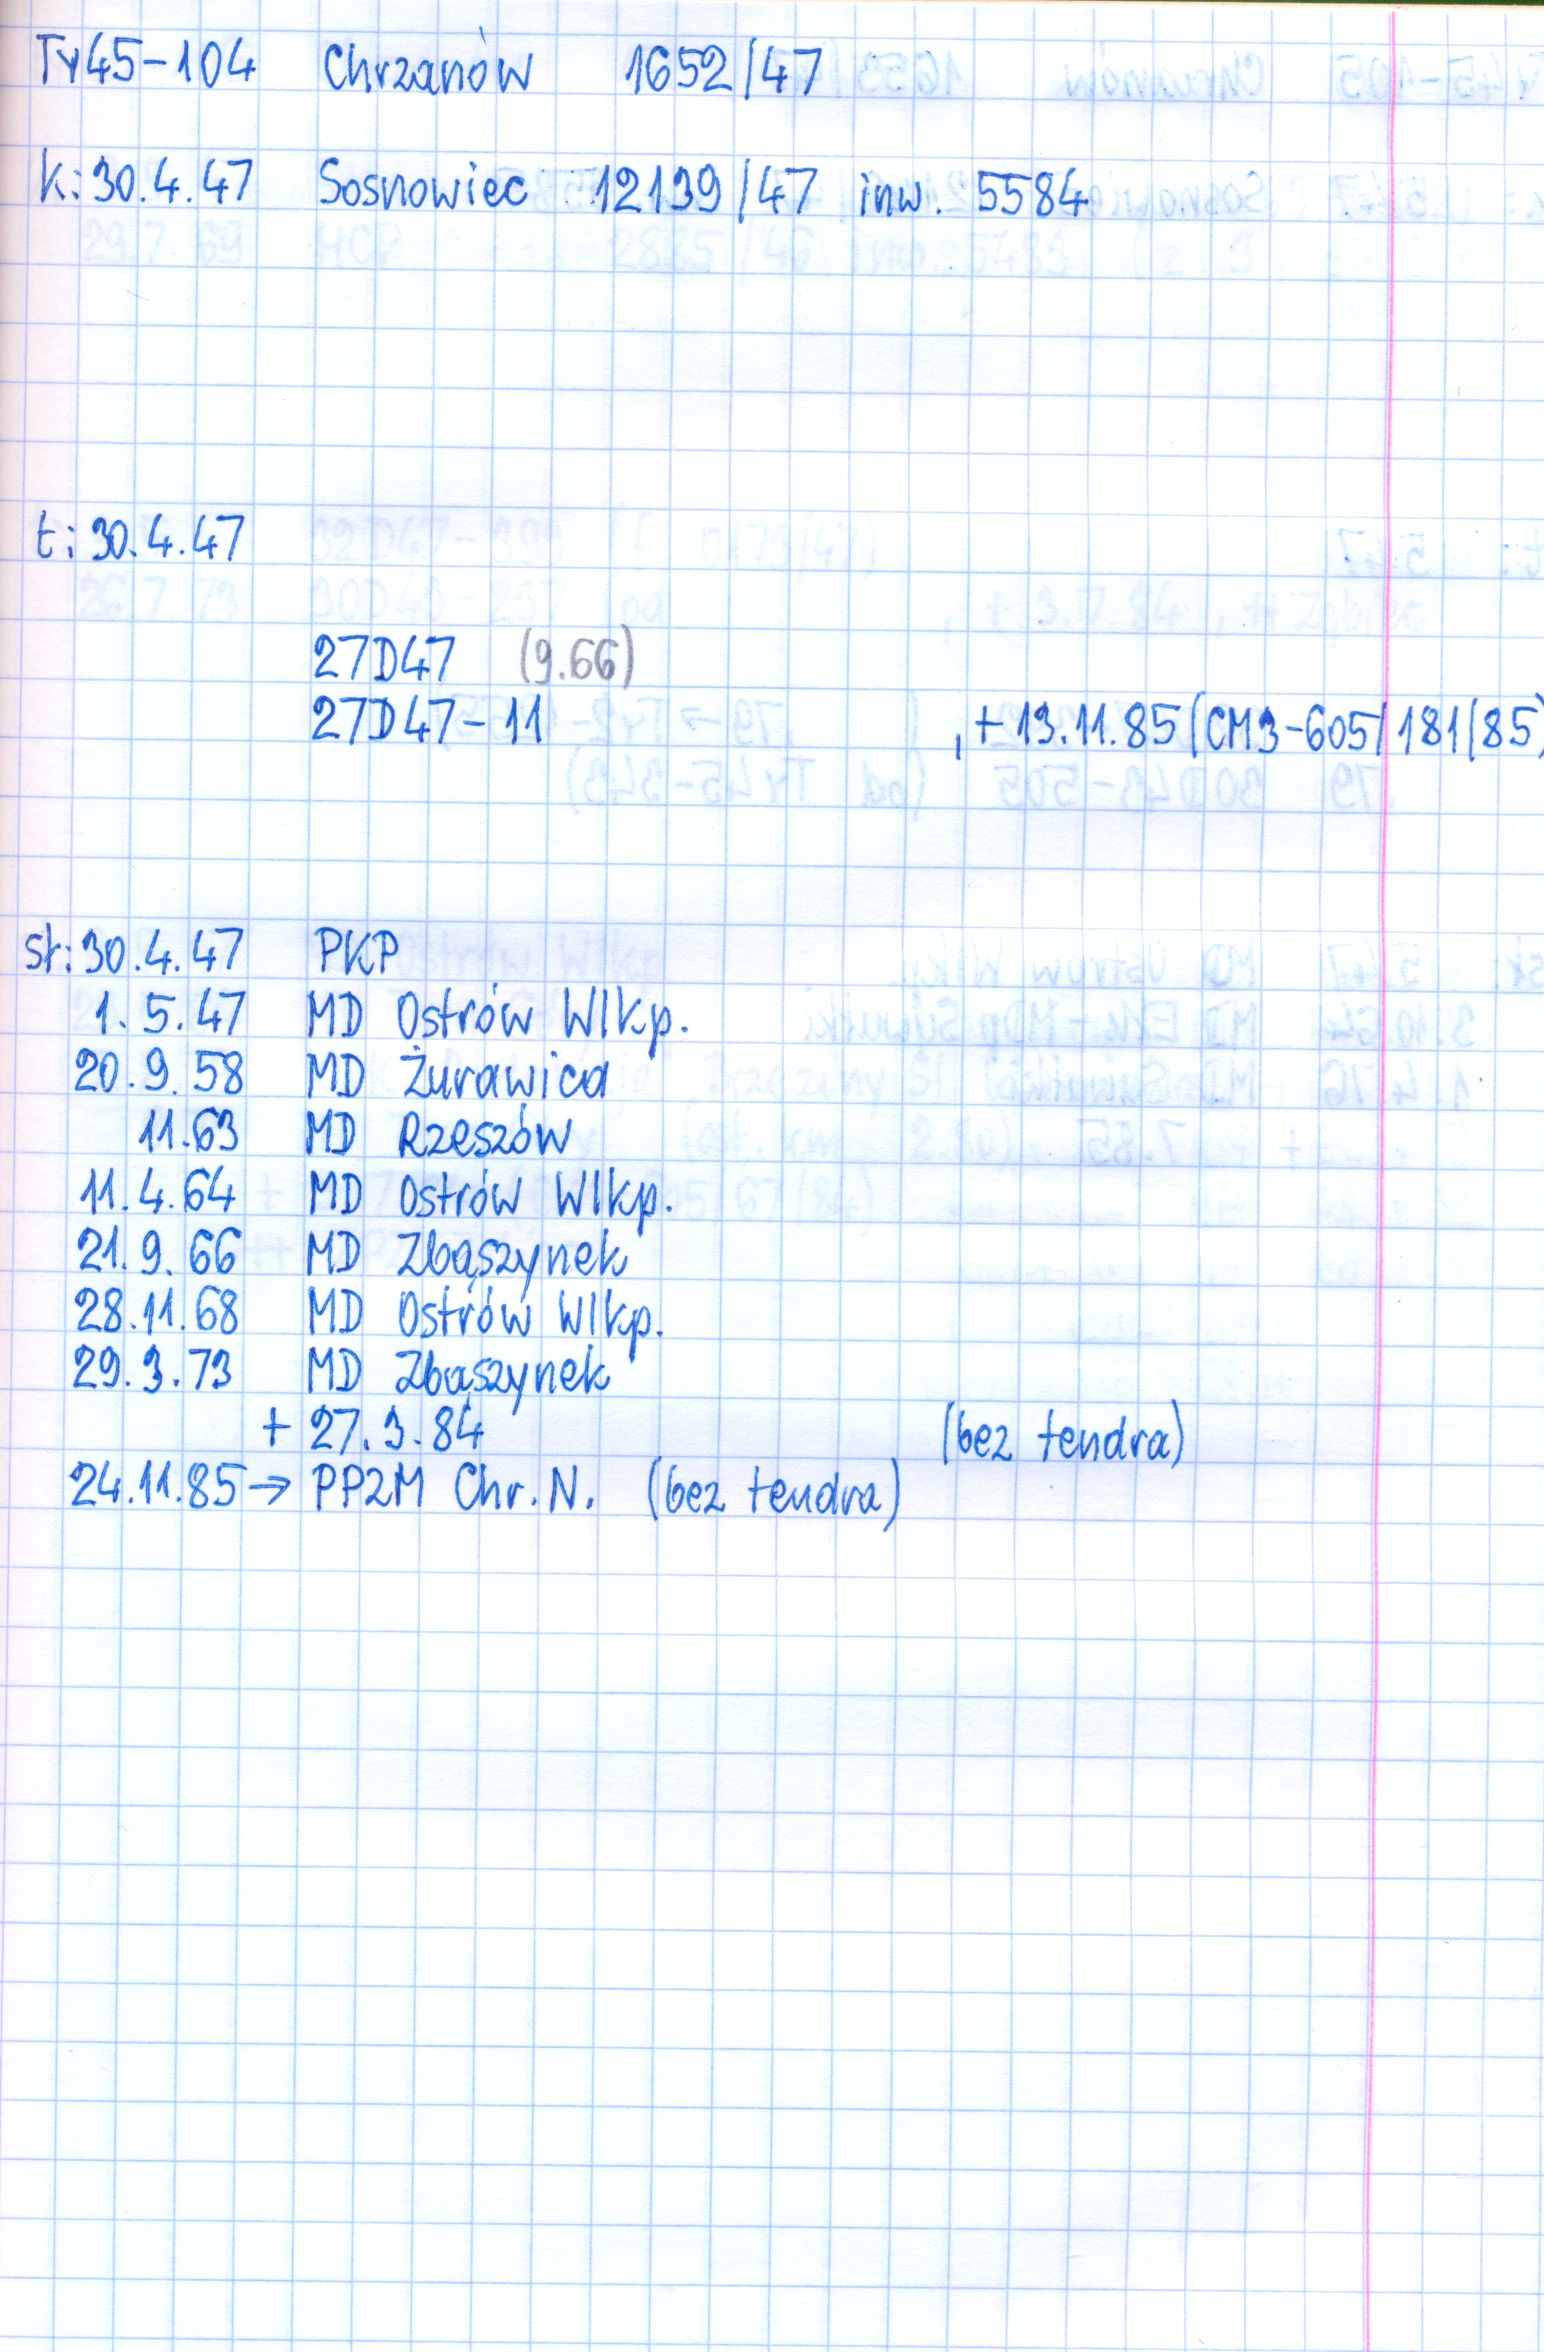 Ty45-104 Chrzanów 1652/47
k: 30.4.47 Sosnowiec 12139/47 inw. 5584
t: 30.4.47
27D47 (9.66)
27D47-11 , + 13.11.85 (CM3-605/181/85)
sł: 30.4.47 PKP
1.5.47 MD Ostrów Wlkp.
20.9.58 MD Żurawica
11.63 MD Rzeszów
11.4.64 MD Ostrów Wlkp.
21.9.66 MD Zbąszynek
28.11.68 MD Ostrów Wlkp.
29.3.73 MD Zbąszynek
+ 27.3.84 (bez tendra)
24.11.85 → PP2M Chr. N. (bez tendra)